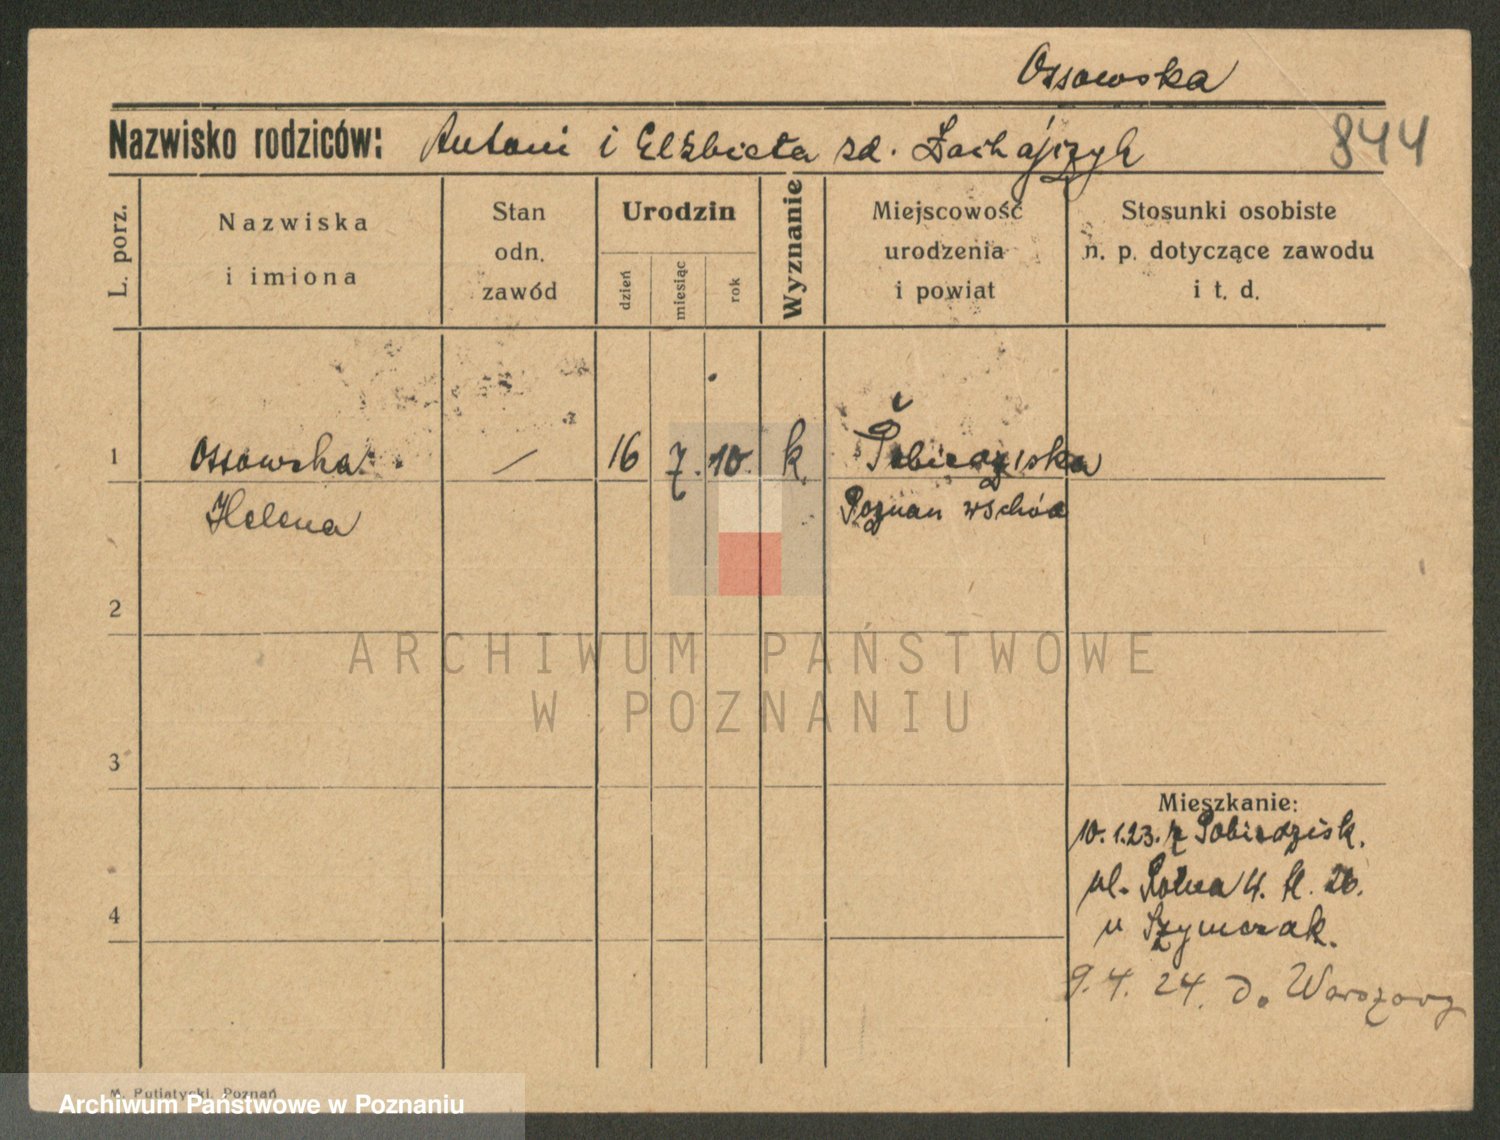 Ossowska
Nazwisko rodziców: Antoni i Elżbieta zd.
844
L. porz.
Nazwiska
i imiona
Stan
odn.
zawód
Urodzin
dzień
miesiąc
rok
Wyznanie
Miejscowość
urodzenia
i powiat
Stosunki osobiste
n. p. dotyczące zawodu
i t. d.
1
Ossowska
—
16
7.
10.
k.
Pobiedziska
Helena
Poznan wschód
2
ARCHIWUM PAŃSTWOWE
W POZNANIU
3
Mieszkanie:
10.1.23. z Pobiedzisk.
ul. Polna 4. II. 26.
u Szymczak.
4
9.4.24. do Warszawy
M. Putiatycki, Poznań
Archiwum Państwowe w Poznaniu